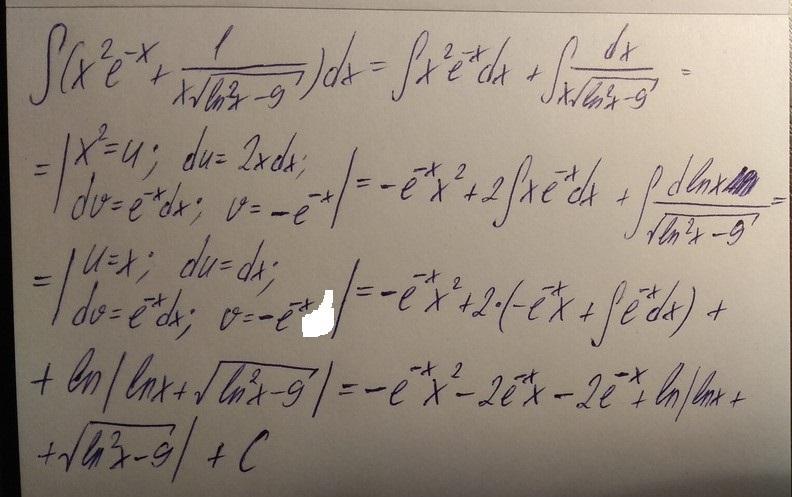 ∫(x²e⁻ˣ + 1/(x√(ln²x − 9)))dx = ∫x²e⁻ˣdx + ∫dx/(x√(ln²x − 9)) =
= |x² = u; du = 2xdx; dv = e⁻ˣdx; v = −e⁻ˣ| = −e⁻ˣx² + 2∫xe⁻ˣdx + ∫dlnx/√(ln²x − 9) =
= |u = x; du = dx; dv = e⁻ˣdx; v = −e⁻ˣ| = −e⁻ˣx² + 2·(−e⁻ˣx + ∫e⁻ˣdx) +
+ ln|lnx + √(ln²x − 9)| = −e⁻ˣx² − 2e⁻ˣx − 2e⁻ˣ + ln|lnx +
+ √(ln²x − 9)| + C